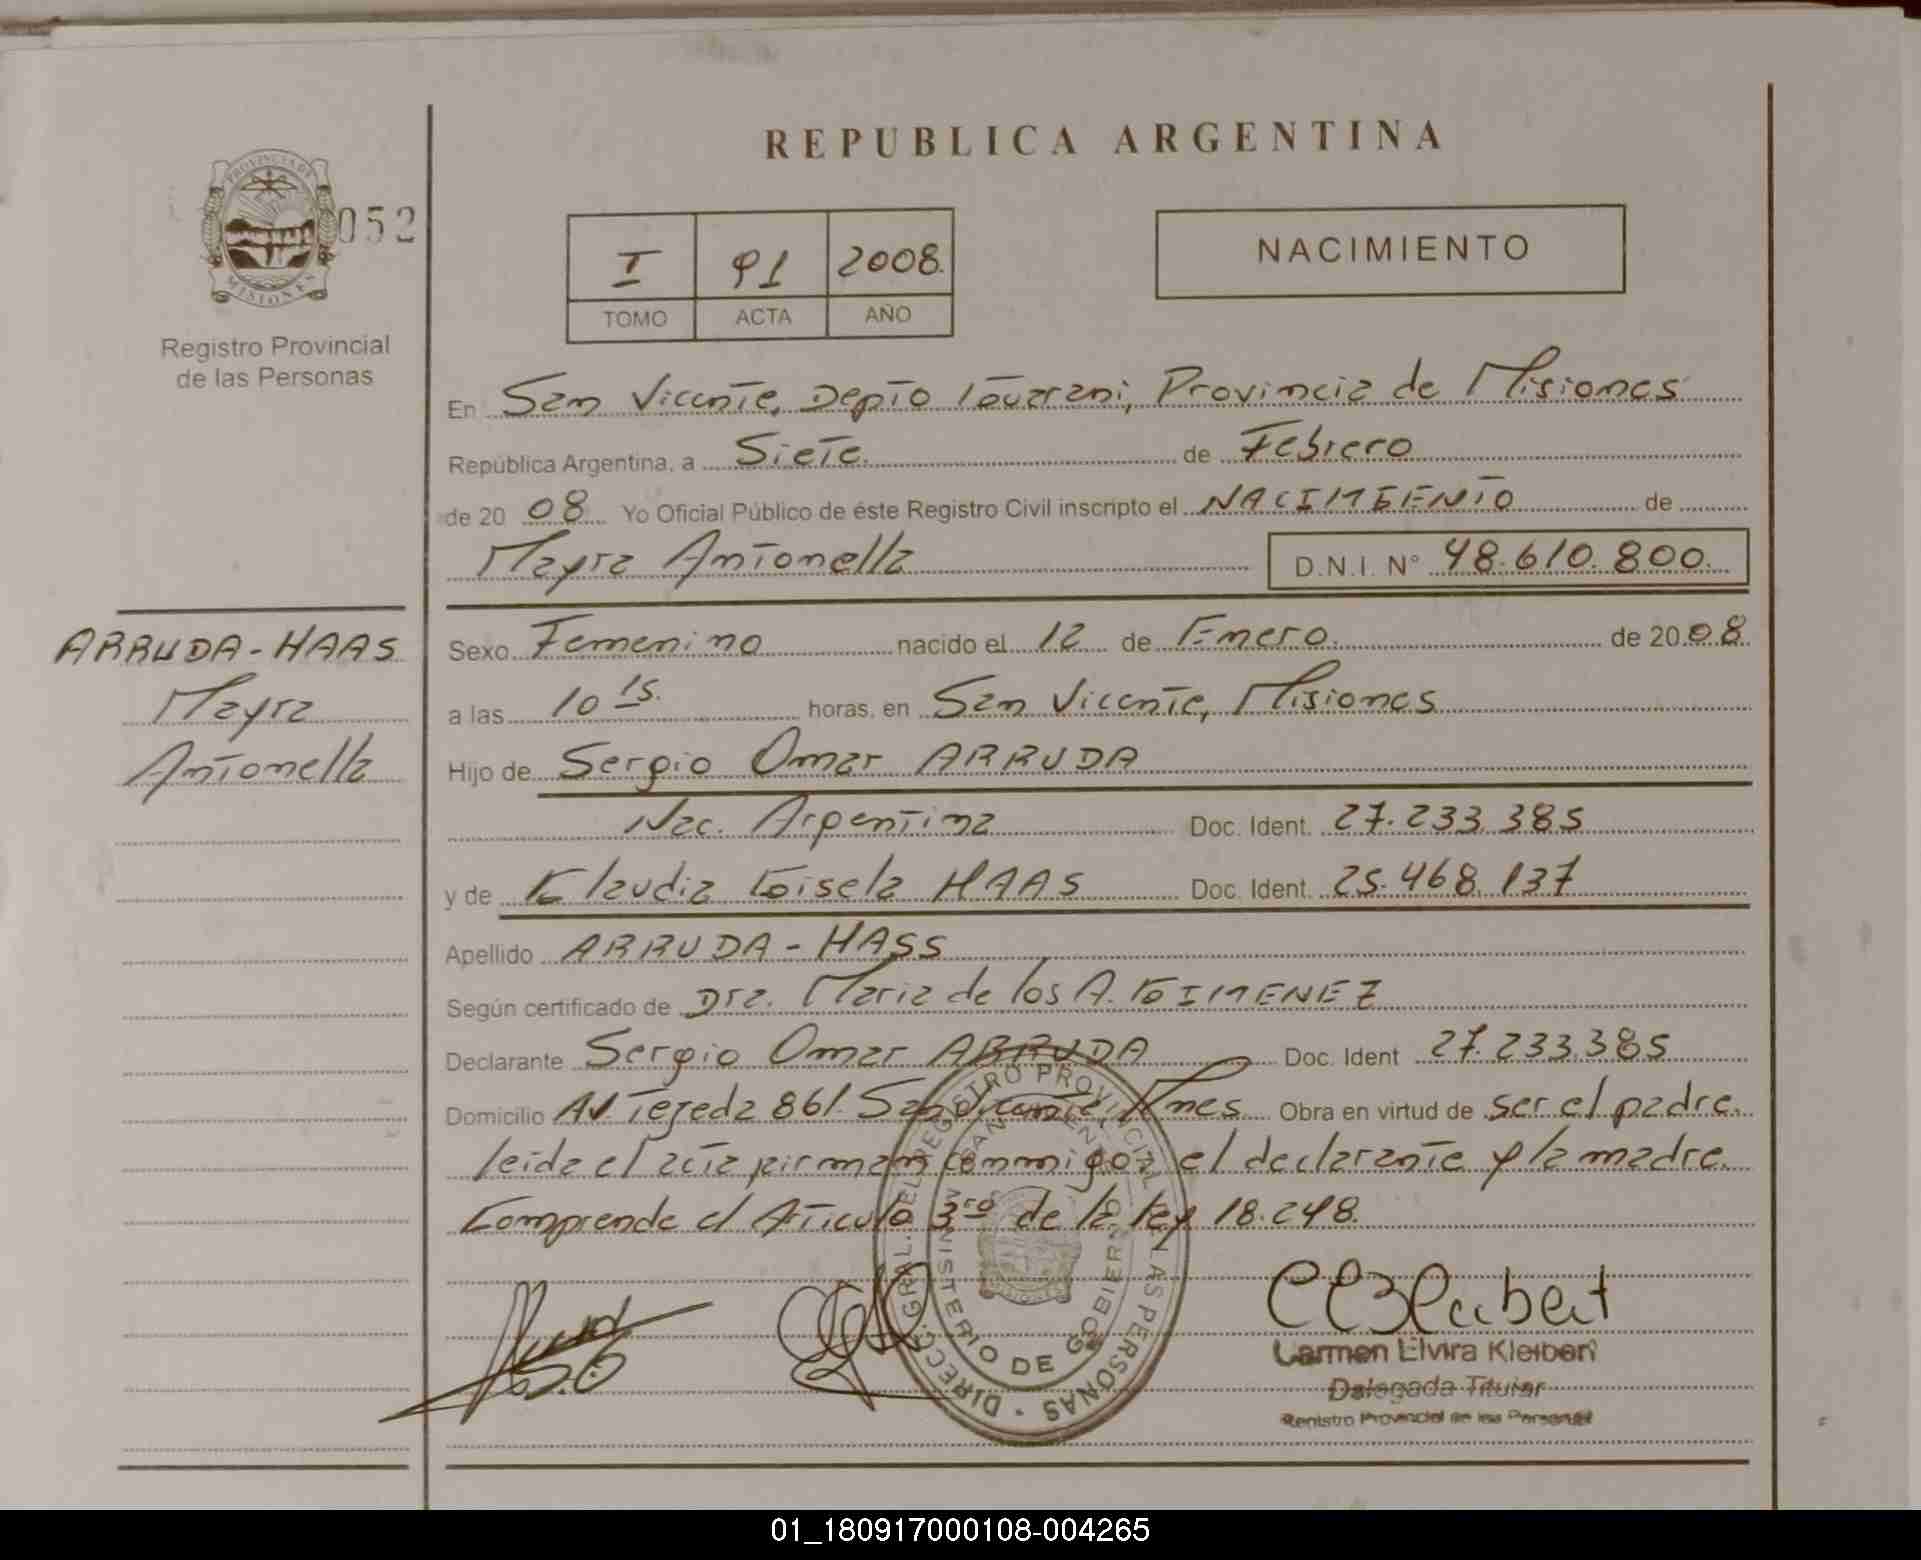 REPUBLICA ARGENTINA
PROVINCIA DE
MISIONES
052
Registro Provincial
de las Personas
I 91 2008.
TOMO ACTA AÑO
NACIMIENTO
En San Vicente, Depto Guarani, Provincia de Misiones
República Argentina, a Siete. de Febrero
de 20 08 Yo Oficial Público de éste Registro Civil inscripto el NACIMIENTO de
Mayra Antonella D.N.I. N° 48.610.800.
ARRUDA-HAAS
Mayra
Antonella
Sexo Femenino nacido el 12 de Enero. de 20 08
a las 10 15. horas, en San Vicente, Misiones
Hijo de Sergio Omar ARRUDA
Nac. Argentina Doc. Ident. 27.233.385
y de Claudia Gisela HAAS Doc. Ident. 25.468.137
Apellido ARRUDA-HASS
Según certificado de Dra. Maria de los A. GIMENEZ
Declarante Sergio Omar ARRUDA Doc. Ident 27.233.385
Domicilio Av. Tejeda 861. San Vicente, Mnes Obra en virtud de ser el padre.
leida el acta firman conmigo el declarante y la madre.
Comprende el Aticulo 3ro de la ley 18.248.
DIRECC. GRAL. DEL REGISTRO PROVINCIAL DE LAS PERSONAS
MINISTERIO DE GOBIERNO
SAN VICENTE
MISIONES
Carmen Elvira Kleibert
Delegada Titular
Registro Provincial de las Personas
01_180917000108-004265